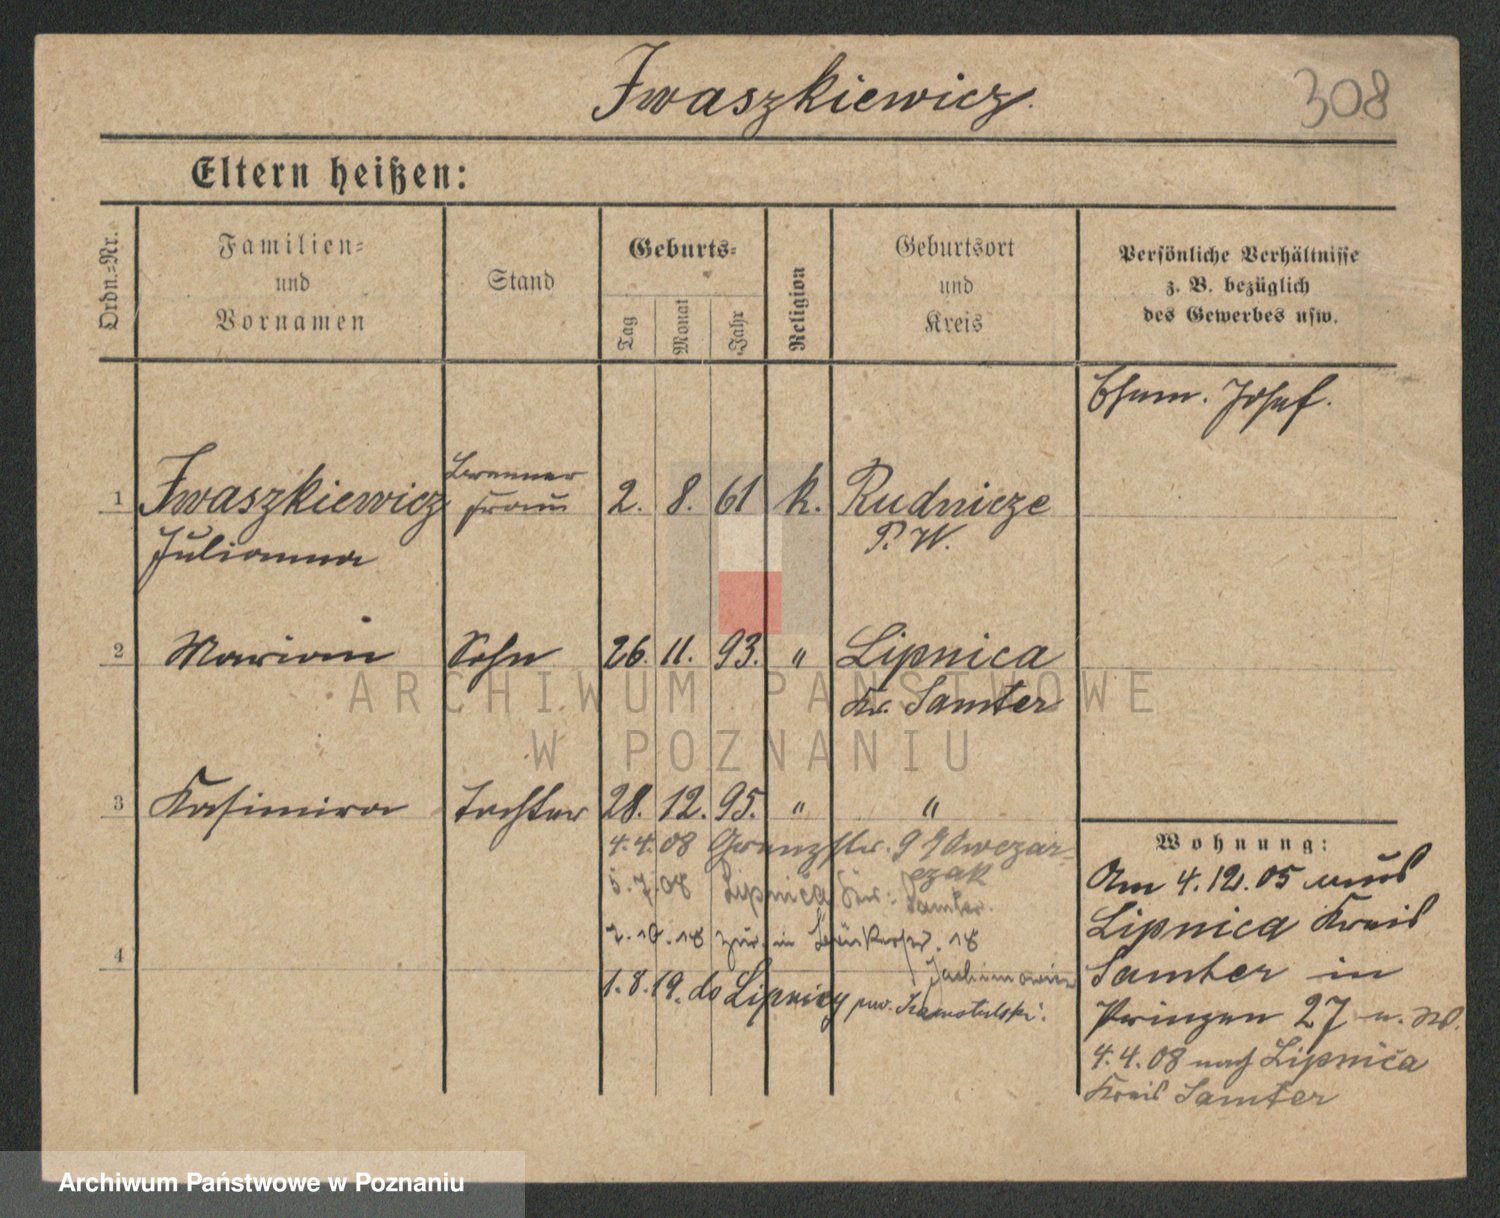 Iwaszkiewicz.
308
Eltern heißen:
Ordn.=Nr.
Familien=
und
Vornamen
Stand
Geburts=
Tag
Monat
Jahr
Religion
Geburtsort
und
Kreis
Persönliche Verhältnisse
z. B. bezüglich
des Gewerbes usw.
Ehem. Josef.
1 Iwaszkiewicz Brenner frau 2. 8. 61 k. Rudnicze
Julianna P. W.
2 Marian Sohn 26. 11. 93. " Lipnica
Kr. Samter
3 Kasimira Tochter 28. 12. 95. " "
4.4.08 Grenzstr. 9 Owczar=
czak
5.7.08 Lipnica Kr. Samter.
2.10.18 zur. in 18
4
1.8.19. do Lipnicy pow. Szamotulski.
Wohnung:
Am 4.12.05 aus
Lipnica Kreis
Samter in
Prinzen 27
4.4.08 nach Lipnica
Kreis Samter
ARCHIWUM PAŃSTWOWE
W POZNANIU
Archiwum Państwowe w Poznaniu